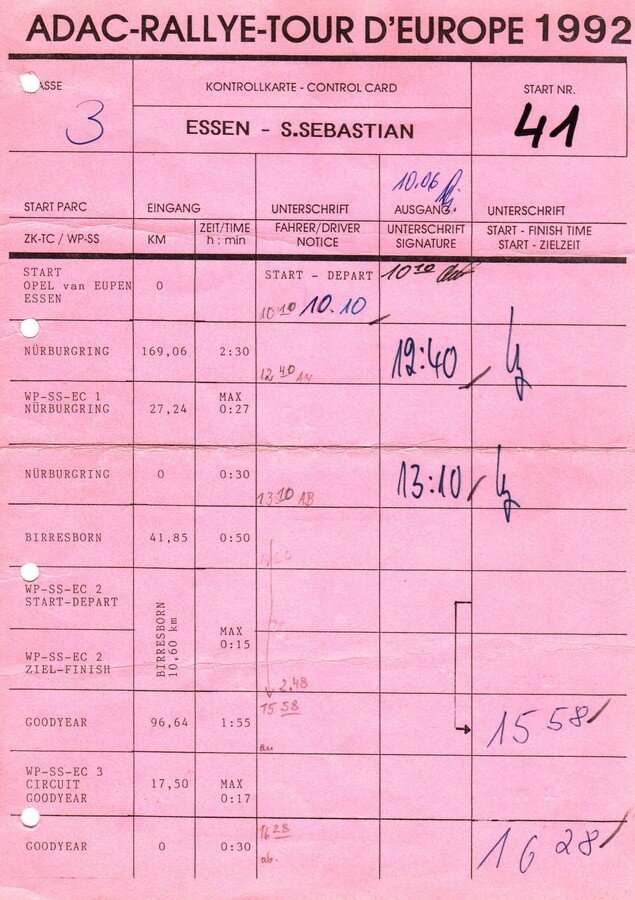 ADAC-RALLYE-TOUR D'EUROPE 1992
ASSE
3
KONTROLLKARTE - CONTROL CARD
ESSEN - S.SEBASTIAN
START NR.
41
10.06
START PARC EINGANG UNTERSCHRIFT AUSGANG UNTERSCHRIFT
ZK-TC / WP-SS KM ZEIT/TIME h : min FAHRER/DRIVER NOTICE UNTERSCHRIFT SIGNATURE START - FINISH TIME START - ZIELZEIT
START START - DEPART 10 10
OPEL van EUPEN 0
ESSEN 10 10 10.10
NÜRBURGRING 169,06 2:30 12:40
12 40 AN
WP-SS-EC 1 MAX
NÜRBURGRING 27,24 0:27
NÜRBURGRING 0 0:30 13:10
13 10 AB
BIRRESBORN 41,85 0:50
WP-SS-EC 2
START-DEPART
BIRRESBORN 10,60 km
MAX
0:15
WP-SS-EC 2
ZIEL-FINISH
2.48
15 58
GOODYEAR 96,64 1:55 15 58
an
WP-SS-EC 3
CIRCUIT 17,50 MAX
GOODYEAR 0:17
16 28
GOODYEAR 0 0:30 16 28
ab.